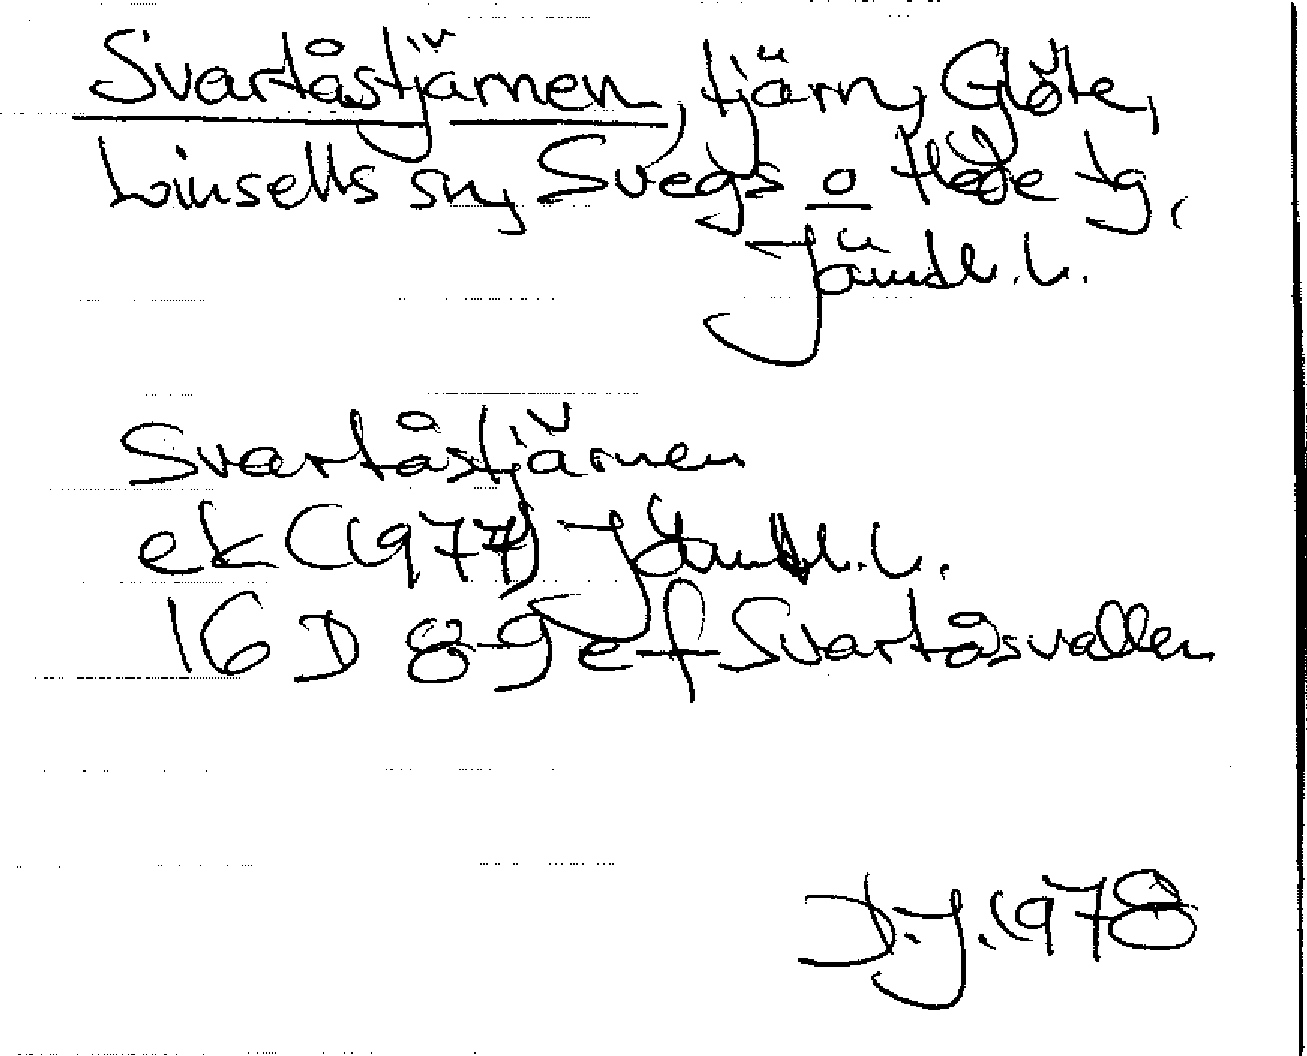 Svartåstjärnen, tjärn, Glöte,
Linsells sn, Svegs o Hede tg,
Jämtl. l.
Svartåstjärnen
ek (1977) Jämtl. l.
16 D 8-9 ef Svartåsvallen
D.J. 1978